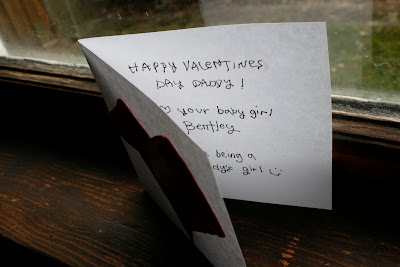 HAPPY VALENTINES
DAY DADDY!
♡ your baby girl
Bentley
being a
girl ☺